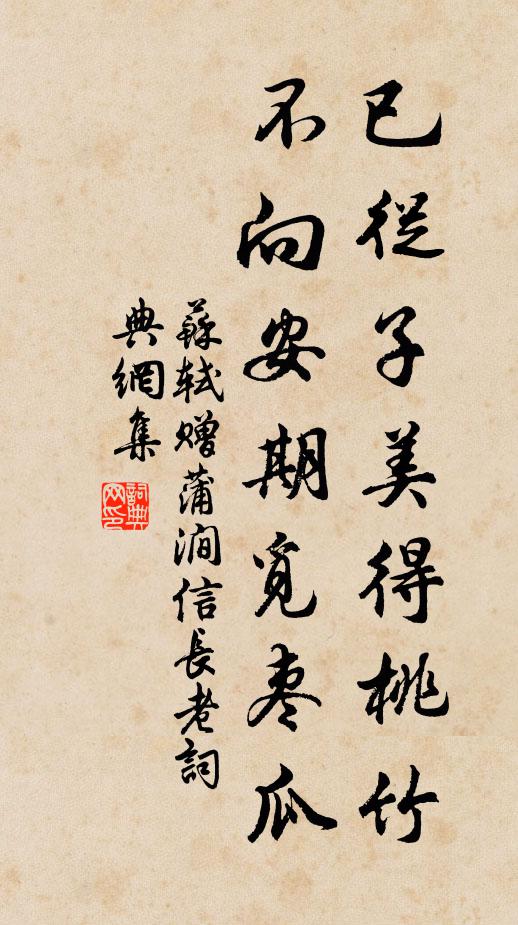 已從子美得桃竹
不向安期覓枣瓜
蘇軾赠蒲澗信長老詞
典網集
詞典
网印